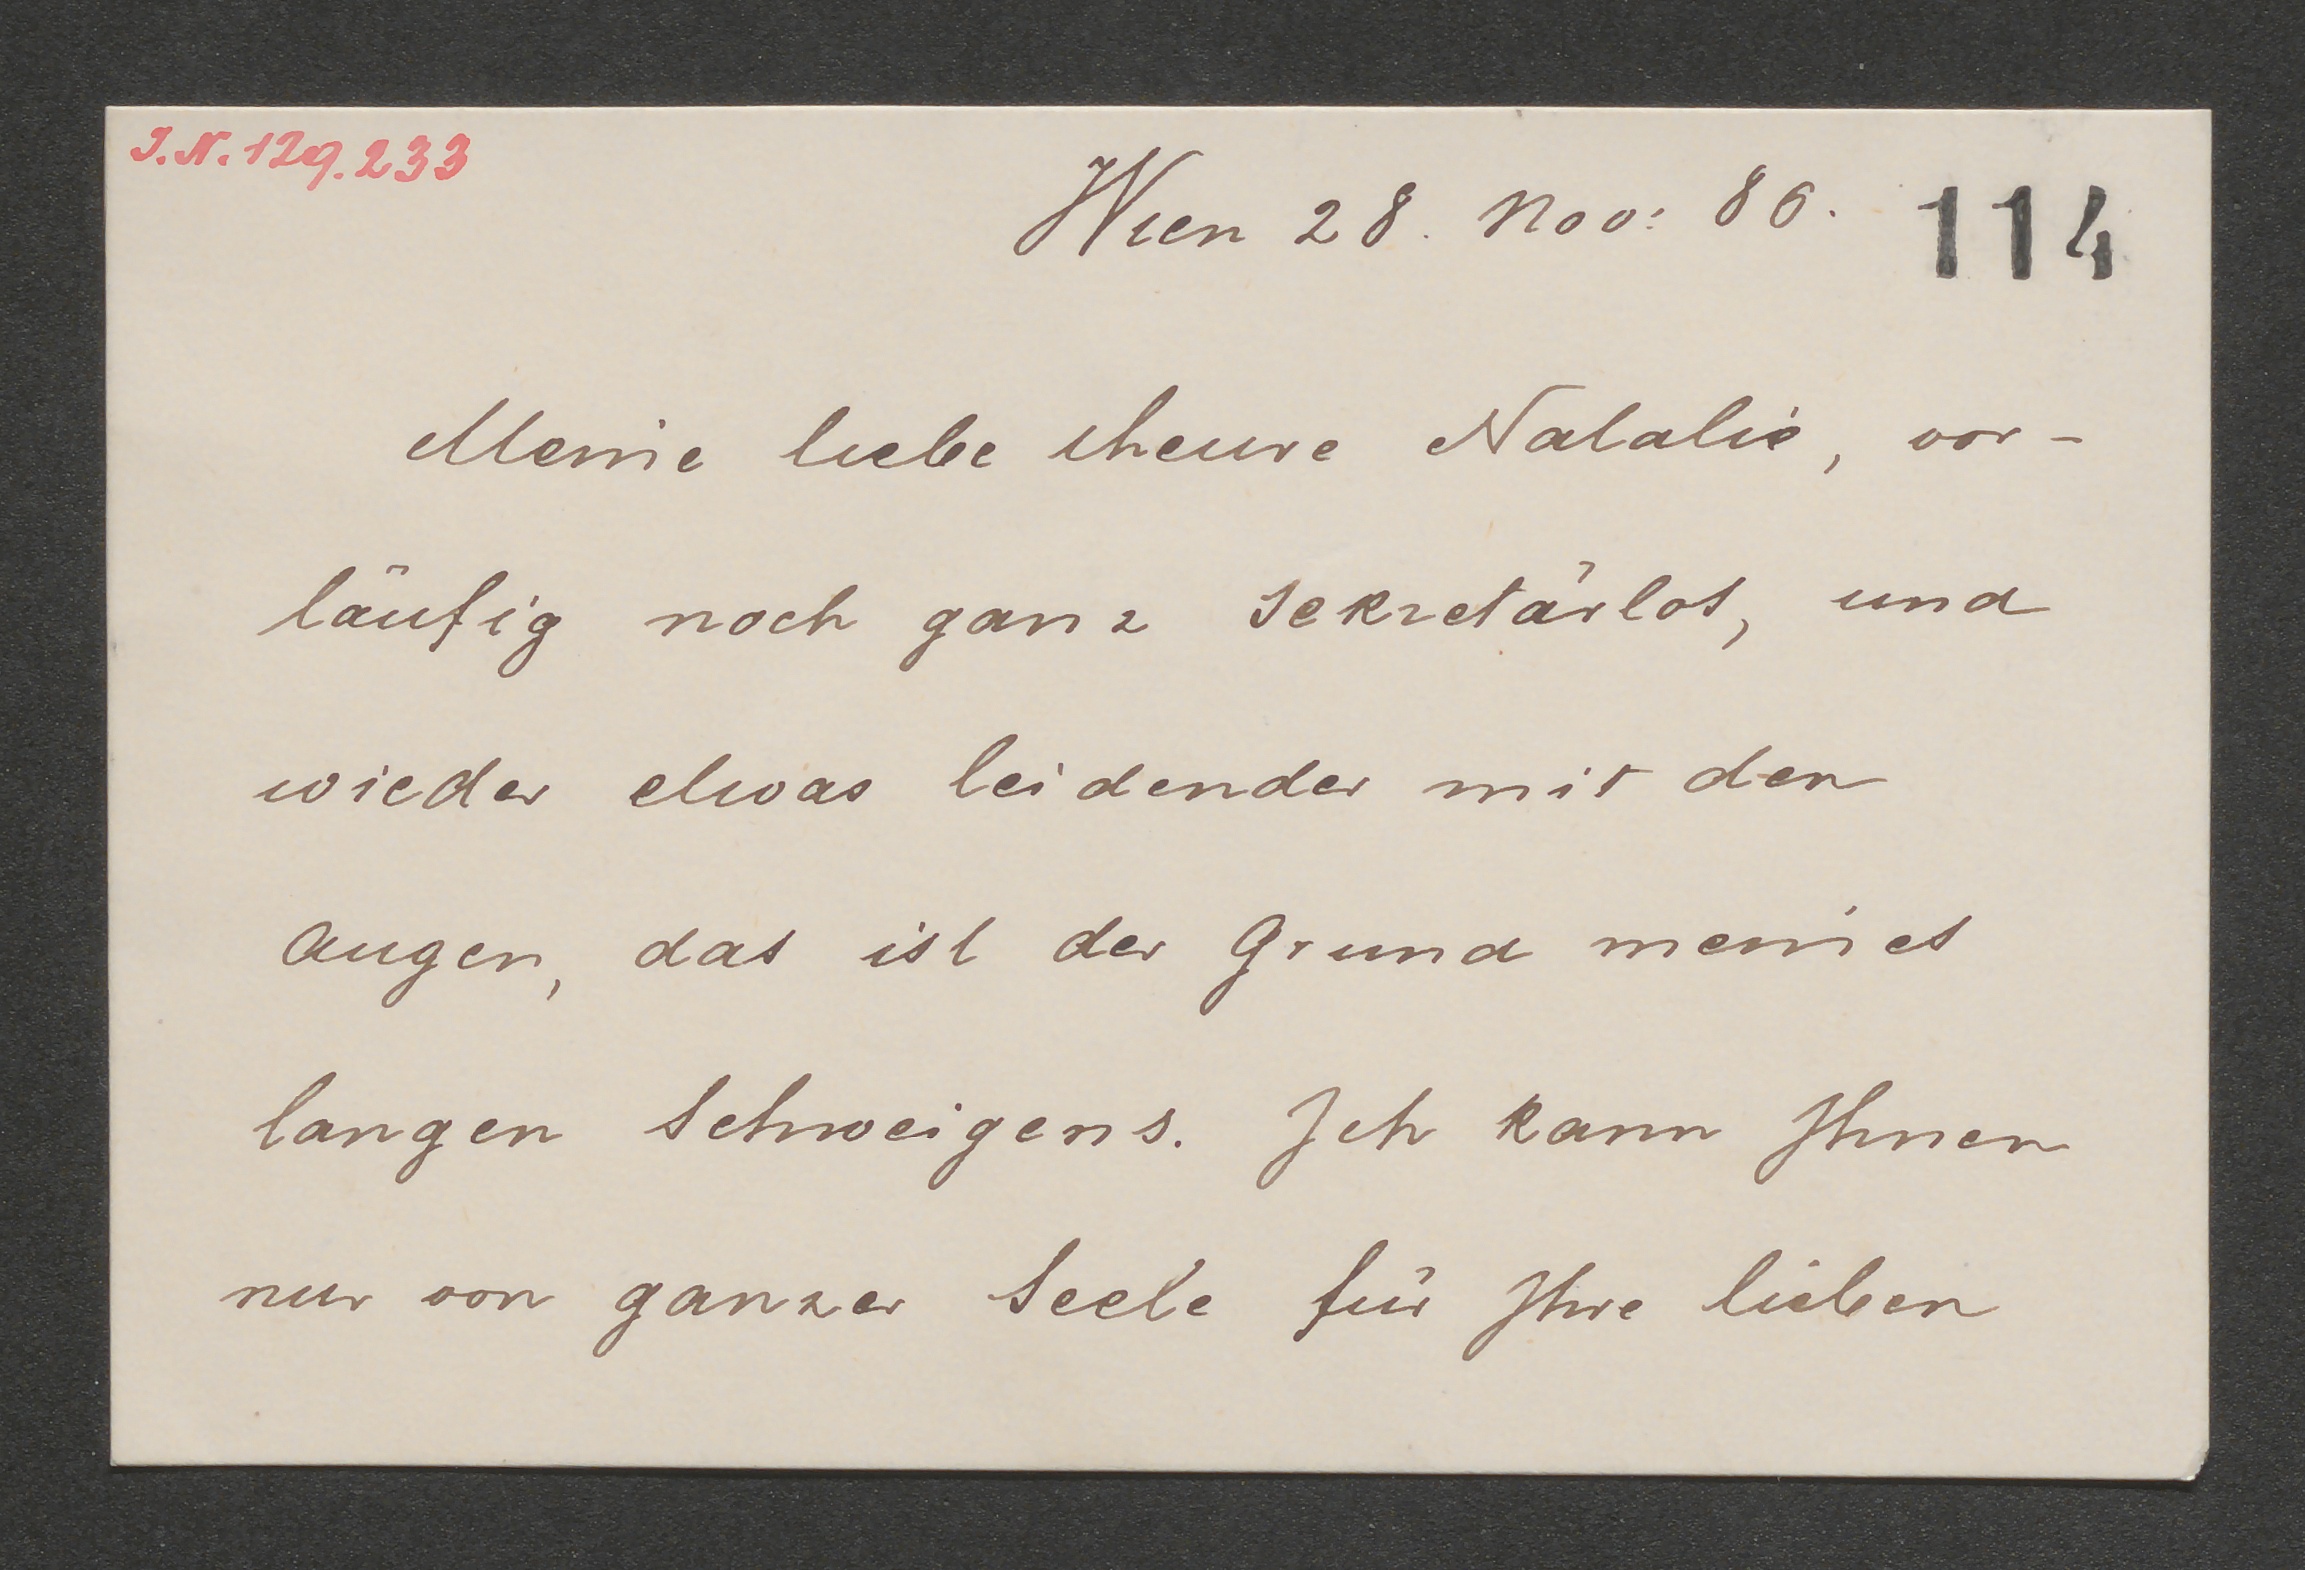 I.N. 129.233
Wien 28. Nov: 86.
114
Meine liebe theure Natalie, vor-
läufig noch ganz sekretärlos, und
wieder etwas leidender mit den
Augen, das ist der Grund meines
langen Schweigens. Ich kann Ihnen
nur von ganzer Seele für Ihre lieben